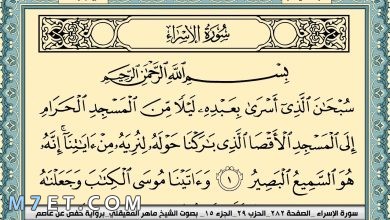 سُورَةُ الإِسْرَاءِ
بِسْمِ اللَّهِ الرَّحْمَٰنِ الرَّحِيمِ
سُبْحَانَ الَّذِي أَسْرَىٰ بِعَبْدِهِ لَيْلًا مِّنَ الْمَسْجِدِ الْحَرَامِ
إِلَى الْمَسْجِدِ الْأَقْصَا الَّذِي بَارَكْنَا حَوْلَهُ لِنُرِيَهُ مِنْ آيَاتِنَا إِنَّهُ
هُوَ السَّمِيعُ الْبَصِيرُ ١ وَءَاتَيْنَا مُوسَى الْكِتَابَ وَجَعَلْنَاهُ
سورة الإسراء _ الصفحة ٢٨٢ _ الحزب ٢٩ _ الجزء ١٥ _ بصوت الشيخ ماهر المعيقلي _ برواية حفص عن عاصم
M7ET.COM